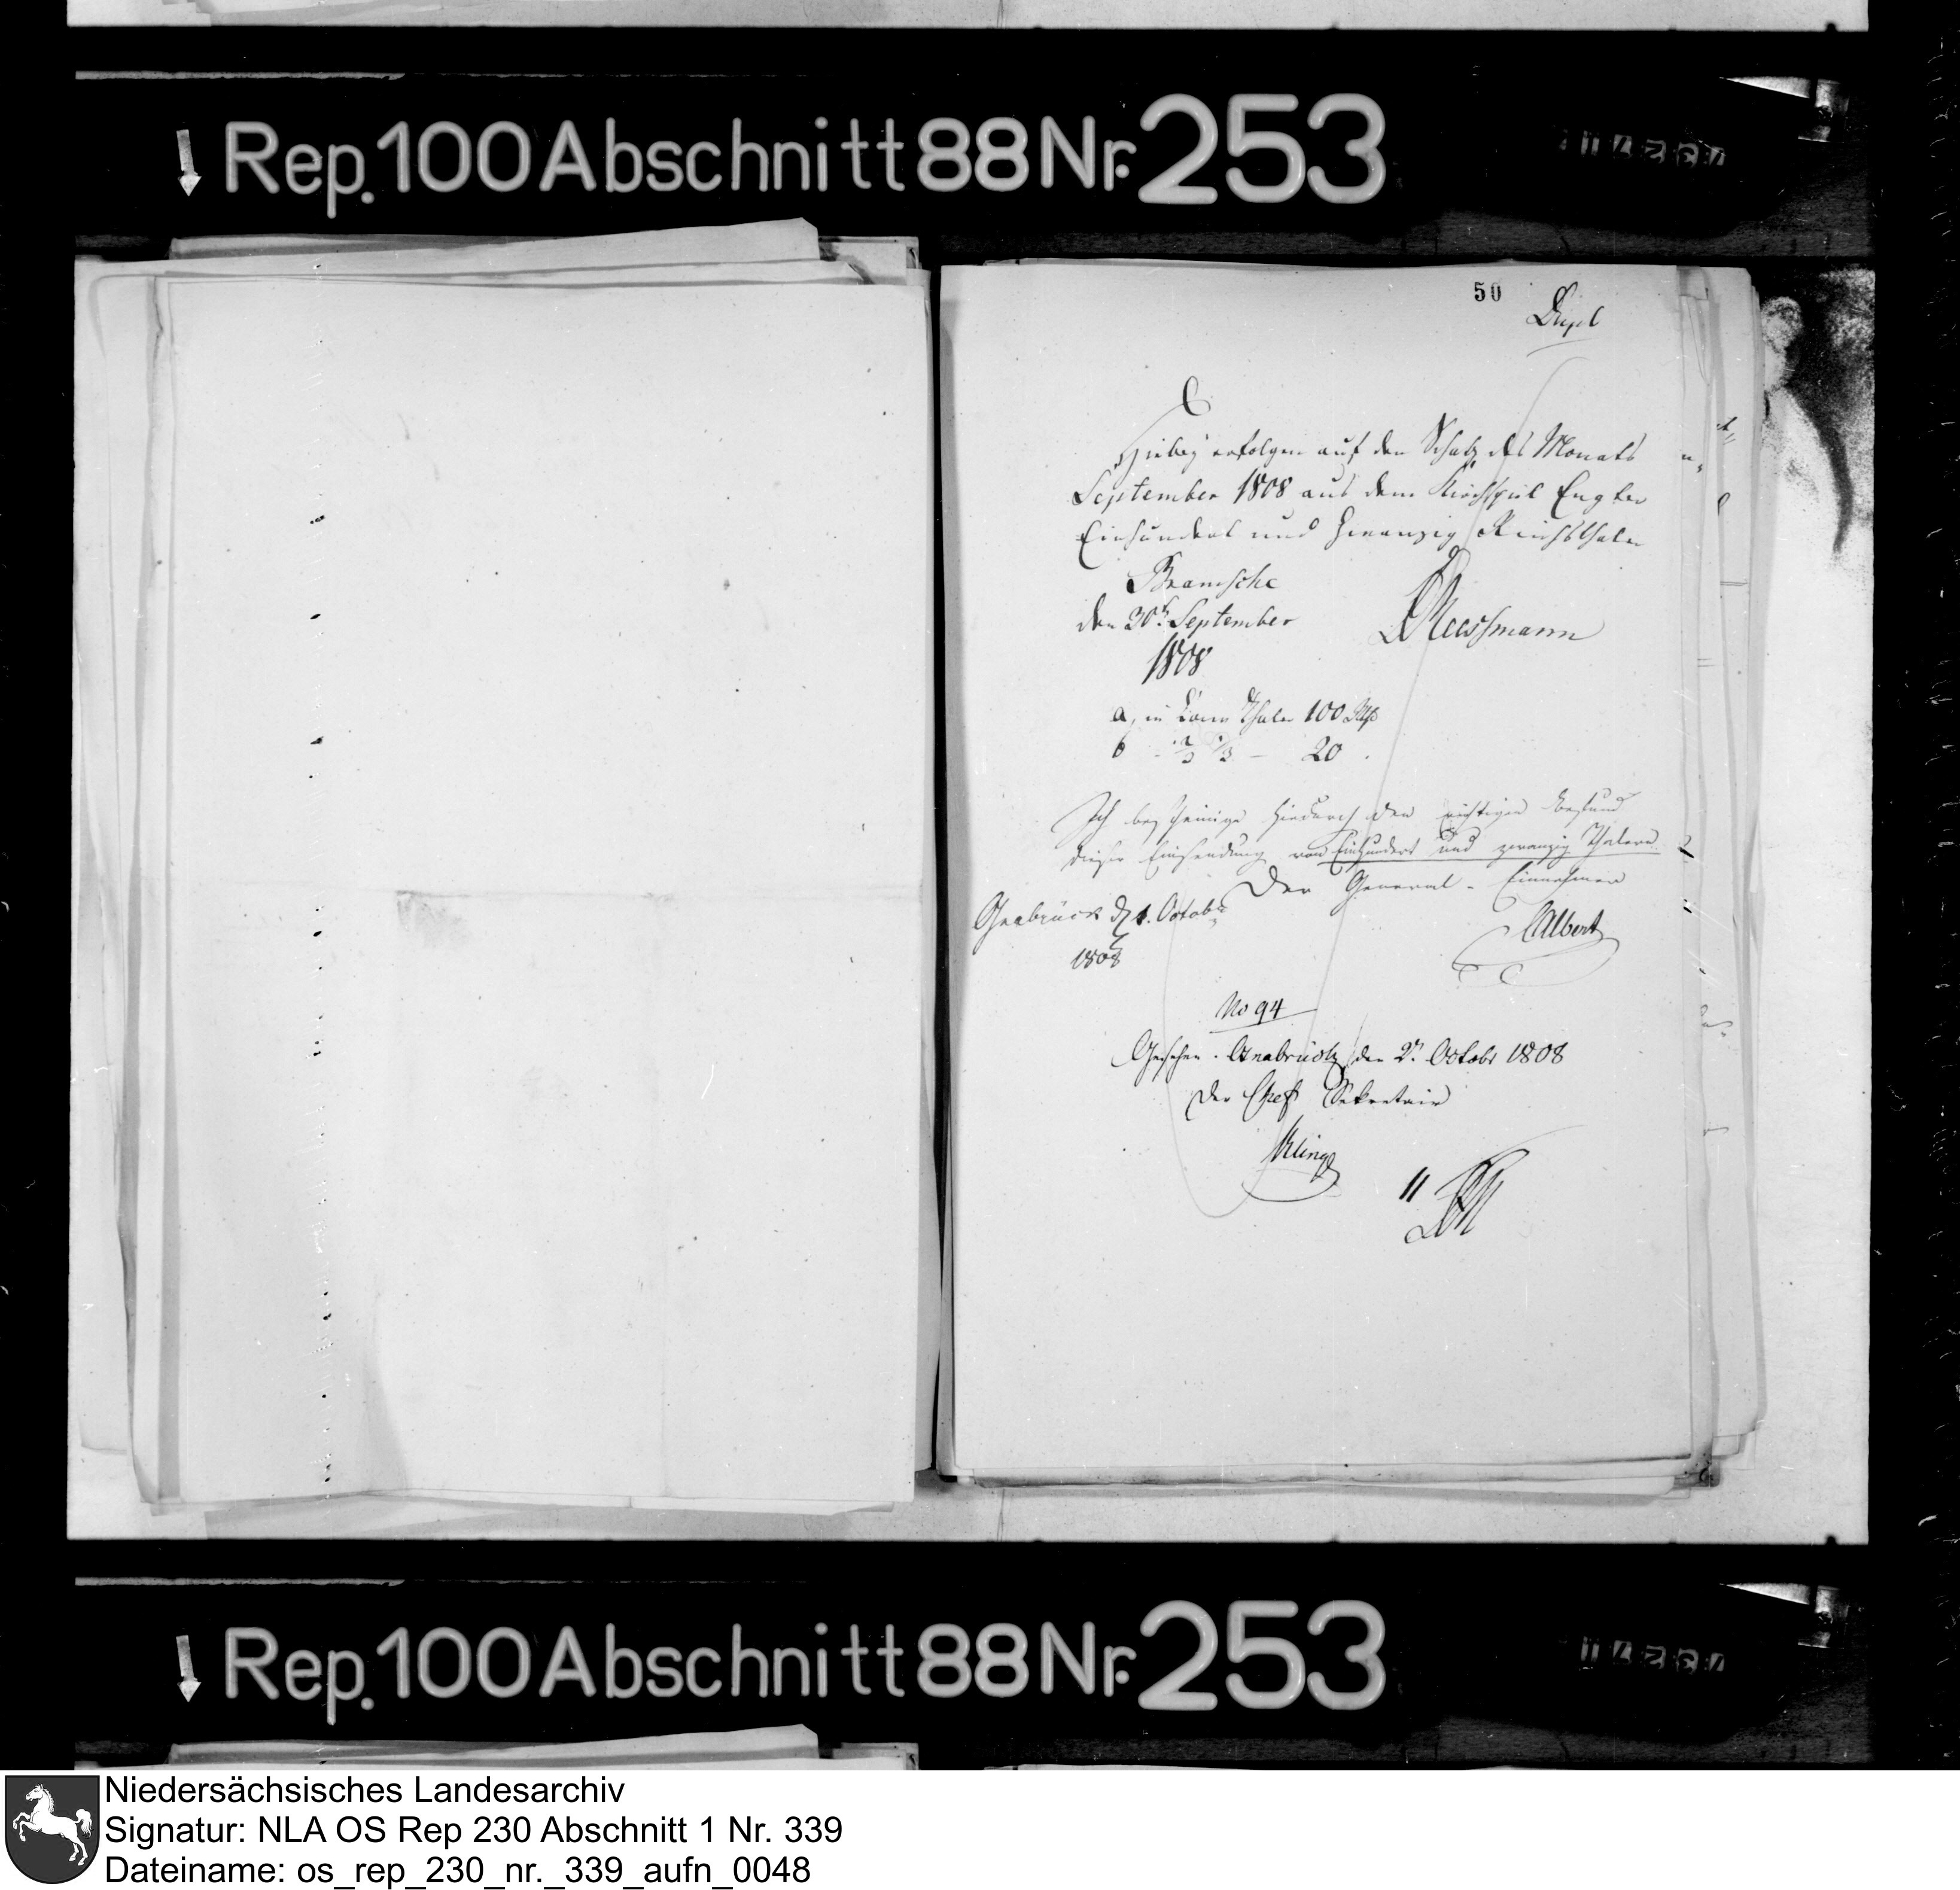 Rep. 100 Abschnitt 88 Nr. 253
50
Dupl
Hiebey erfolgen auf den Schatz des Monats
September 1808 aus dem Kirchspiel Engter
Einhundert und Zwanzig Reichsthaler
Bramsche
den 30t September
1808
a, in Conv Thaler 100 Rthlr
b - 2/3 1/3 - 20
Ich bescheinige hiedurch den richtigen Befund
dieser Einsendung von Einhundert und zwanzig Thalern
Der General-Einnehmer
Osnabrück d. 1. Octobr
1808
CAlbert
No 94
Gesehen. Osnabrück den 2n Octobr 1808
Der Chef Sekretair
Klinge
Rep. 100 Abschnitt 88 Nr. 253
Niedersächsisches Landesarchiv
Signatur: NLA OS Rep 230 Abschnitt 1 Nr. 339
Dateiname: os_rep_230_nr._339_aufn_0048